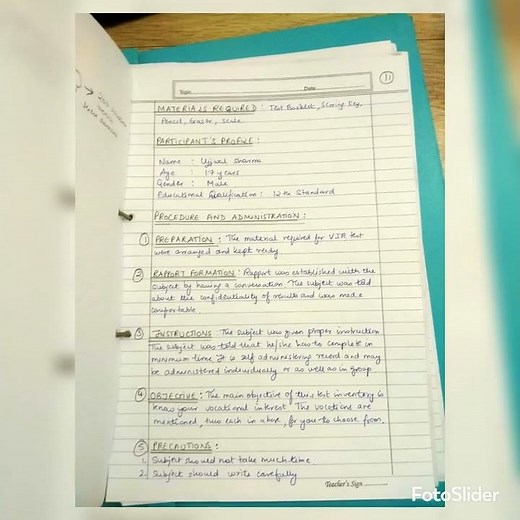 11
Topic
Date
MATERIALS REQUIRED : Test Booklet, Scoring Key,
Pencil, Eraser, Scale
PARTICIPANT'S PROFILE :
Name : Ujjwal Sharma
Age : 17 years
Gender : Male
Educational Qualification : 12th Standard
PROCEDURE AND ADMINISTRATION :
1 PREPARATION : The material required for VIR test
were arranged and kept ready
2 RAPPORT FORMATION : Rapport was established with the
subject by having a conversation. The subject was told
about the confidentiality of results and was made
comfortable.
3 INSTRUCTIONS The subject was given proper instruction
The subject was told that he/she has to complete in
minimum time. It is self administering record and may
be administered individually or as well as in group
4 OBJECTIVE : The main objective of this test inventory is
know your vocational interest. The vocations are
mentioned, two each in a box, for you to choose from.
5 PRECAUTIONS :
1. Subject should not take much time
2. Subject should write carefully
Teacher's Sign
FotoSlider